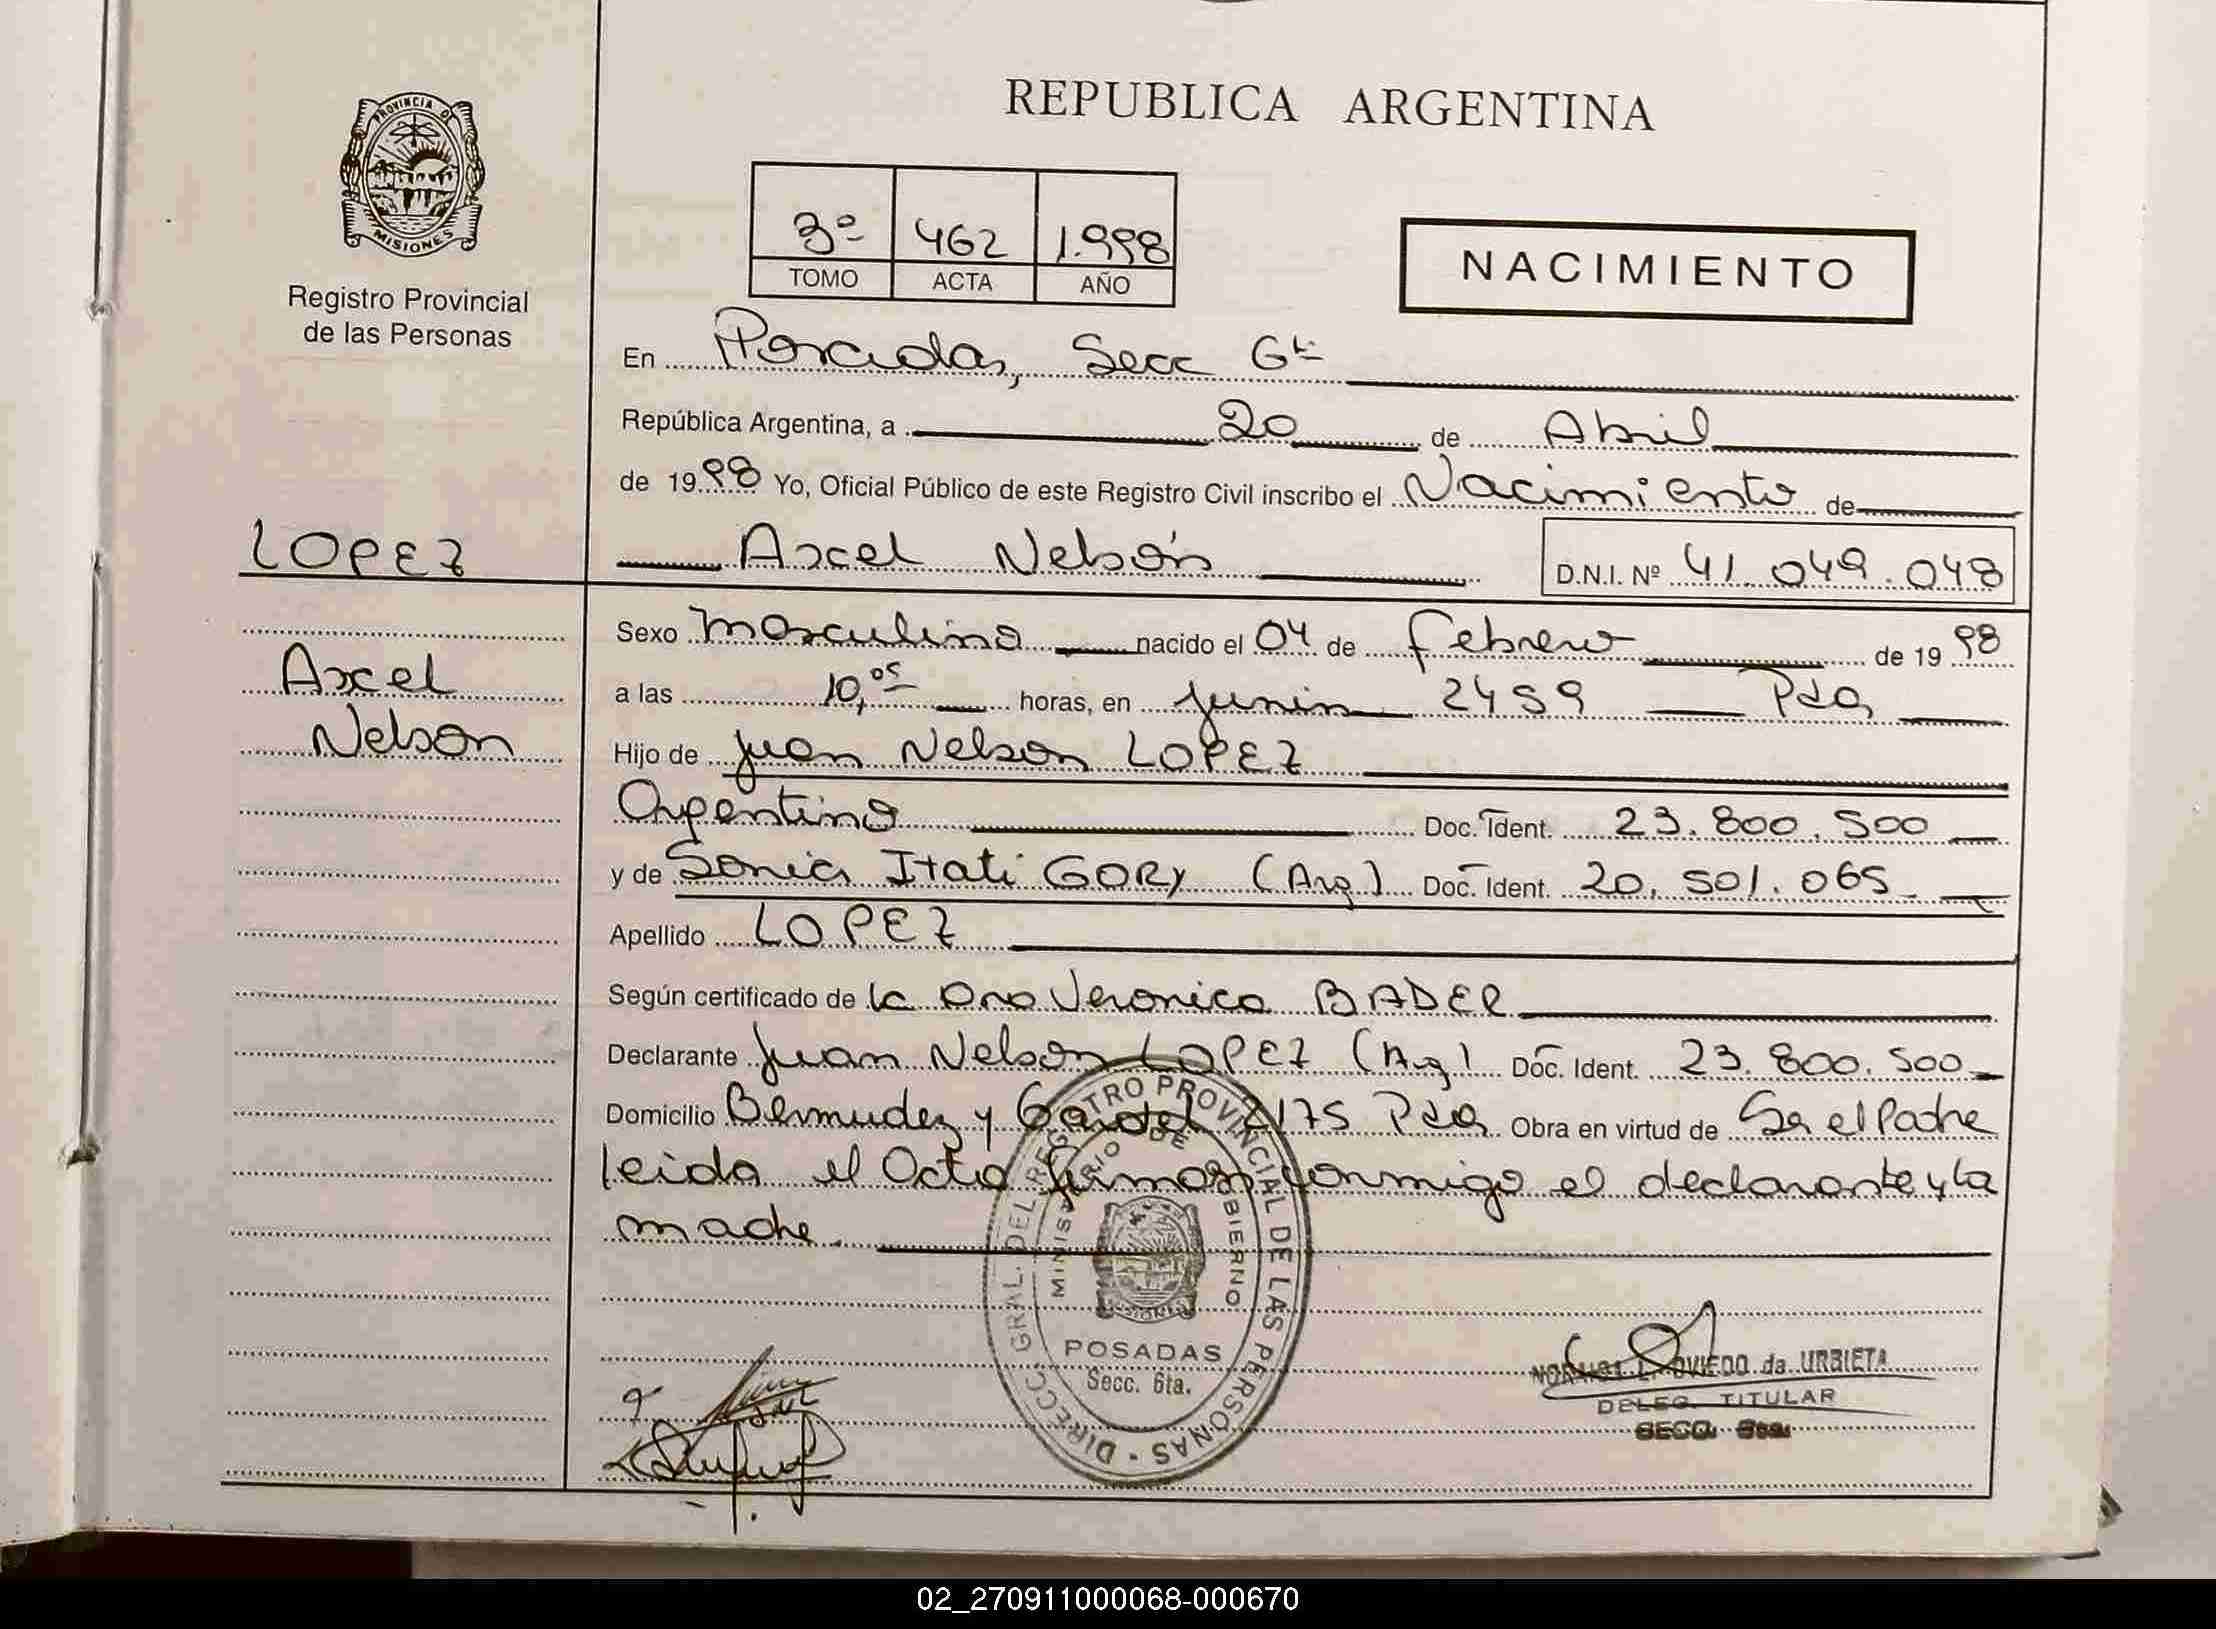 REPUBLICA ARGENTINA
PROVINCIA D
MISIONES
Registro Provincial
de las Personas
3º 462 1.998
TOMO ACTA AÑO
NACIMIENTO
En Posadas, Secc 6ta
República Argentina, a 20 de Abril
de 1998 Yo, Oficial Público de este Registro Civil inscribo el Nacimiento de
LOPEZ
Axel Nelson
D.N.I. Nº 41.049.048
Axel
Nelson
Sexo Masculino nacido el 04 de Febrero de 1998
a las 10,05 horas, en Junin 2459 Pdas
Hijo de Juan Nelson LOPEZ
Argentino Doc. Ident. 23.800.500
y de Sonia Itati GORY (Arg) Doc. Ident. 20.501.065
Apellido LOPEZ
Según certificado de la Dra Veronica BADER
Declarante Juan Nelson LOPEZ (Arg) Doc. Ident. 23.800.500
Domicilio Bermudez y Gardel 2175 Pdas Obra en virtud de Ser el Padre
leida el Acta firman conmigo el declarante y la
madre.
DIRECC. GRAL. DEL REGISTRO PROVINCIAL DE LAS PERSONAS
MINISTERIO DE GOBIERNO
MISIONES
POSADAS
Secc. 6ta.
L. OVIEDO de URBIETA
DELEG. TITULAR
SECC. 6ta.
02_270911000068-000670